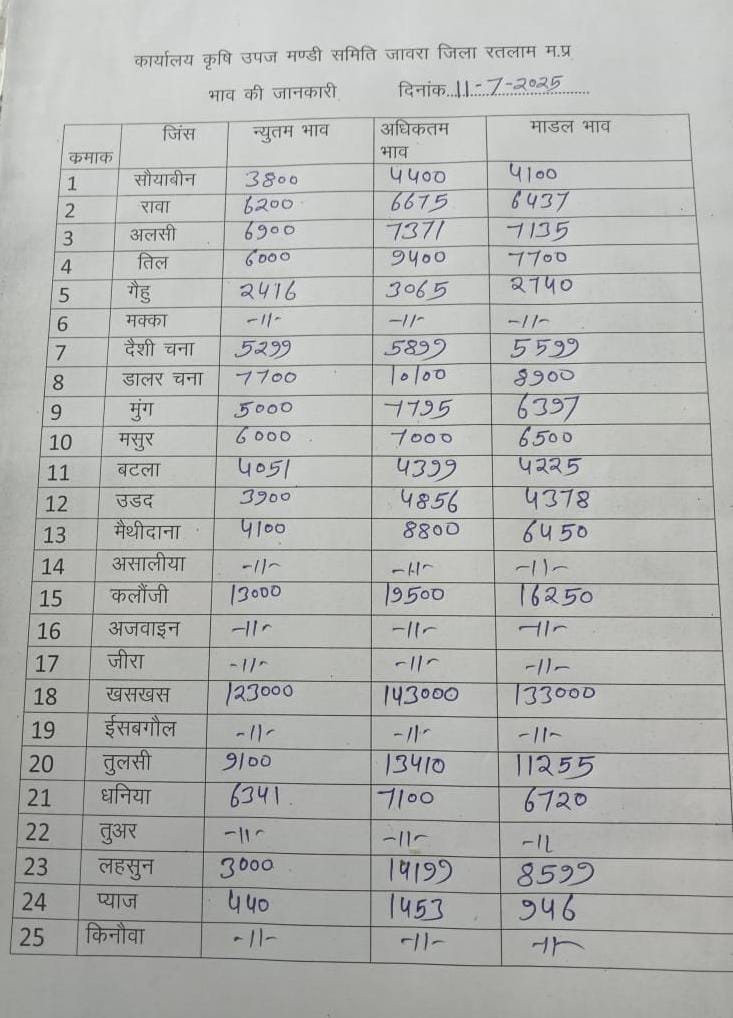 कार्यालय कृषि उपज मण्डी समिति जावरा जिला रतलाम म.प्र
भाव की जानकारी दिनांक..11-7-2025
कमाक जिंस न्युतम भाव अधिकतम भाव माडल भाव
1 सौयाबीन 3800 4400 4100
2 रावा 6200 6675 6437
3 अलसी 6900 7371 7135
4 तिल 6000 9400 7700
5 गैहु 2416 3065 2740
6 मक्का -11- -11- -11-
7 दैशी चना 5299 5899 5599
8 डालर चना 7700 10100 8900
9 मुंग 5000 7795 6397
10 मसुर 6000 7000 6500
11 बटला 4051 4399 4225
12 उडद 3900 4856 4378
13 मैथीदाना 4100 8800 6450
14 असालीया -11- -11- -11-
15 कलौंजी 13000 19500 16250
16 अजवाइन -11- -11- -11-
17 जीरा -11- -11- -11-
18 खसखस 123000 143000 133000
19 ईसबगौल -11- -11- -11-
20 तुलसी 9100 13410 11255
21 धनिया 6341 7100 6720
22 तुअर -11- -11- -11
23 लहसुन 3000 14199 8599
24 प्याज 440 1453 946
25 किनौवा -11- -11- -11-